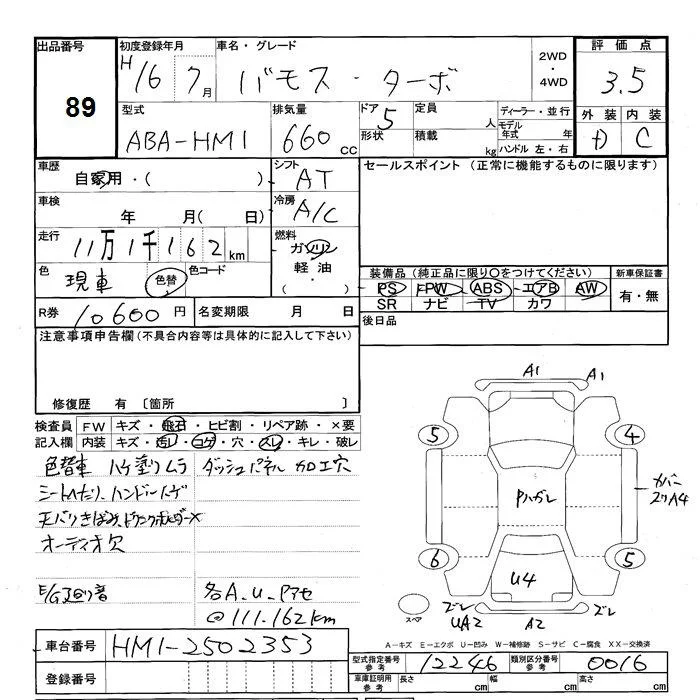 出品番号 初度登録年月 車名・グレード 評価点
89
H16 7月 バモス・ターボ 2WD・4WD 3.5
型式 排気量 ドア 定員 ディーラー・並行 外装 内装
ABA-HM1 660 CC 5 人 モデル年式 年 D C
形状 積載 kg ハンドル 左・右
車歴 シフト セールスポイント (正常に機能するものに限ります)
自家用・( ) AT
車検 冷房
年 月( 日) A/C
走行 燃料
11万1千162 km ガソリン・軽油・( )
色 色コード 装備品(純正品に限り○をつけてください) 新車保証書
現車 色替 PS PW ABS エアB AW 有・無
SR ナビ TV カワ
R券 10600円 名変期限 月 日 後日品
注意事項申告欄(不具合内容等は具体的に記入して下さい)
修復歴 有 〔箇所 〕
検査員記入欄 FW キズ・飛石・ヒビ割・リペア跡・×要
内装 キズ・汚レ・コゲ・穴・スレ・キレ・破レ
色替車 ハケ塗りムラ ダッシュパネル 加工穴
シートへたり、ハンドルハゲ
オーディオ欠
各A.U.
@111.162km
A1 A1
5 4
Pハガレ
カバー
A4
6 5
U4
スペア
ズレ UA2 A2 ズレ
A-キズ E-エクボ U-凹み W-補修跡 S-サビ C-腐食 XX-交換済
車台番号 HM1-2502353
登録番号
型式指定番号 参考 12246 類別区分番号 参考 0016
車庫証明用 参考 長さ cm 幅 cm 高さ cm